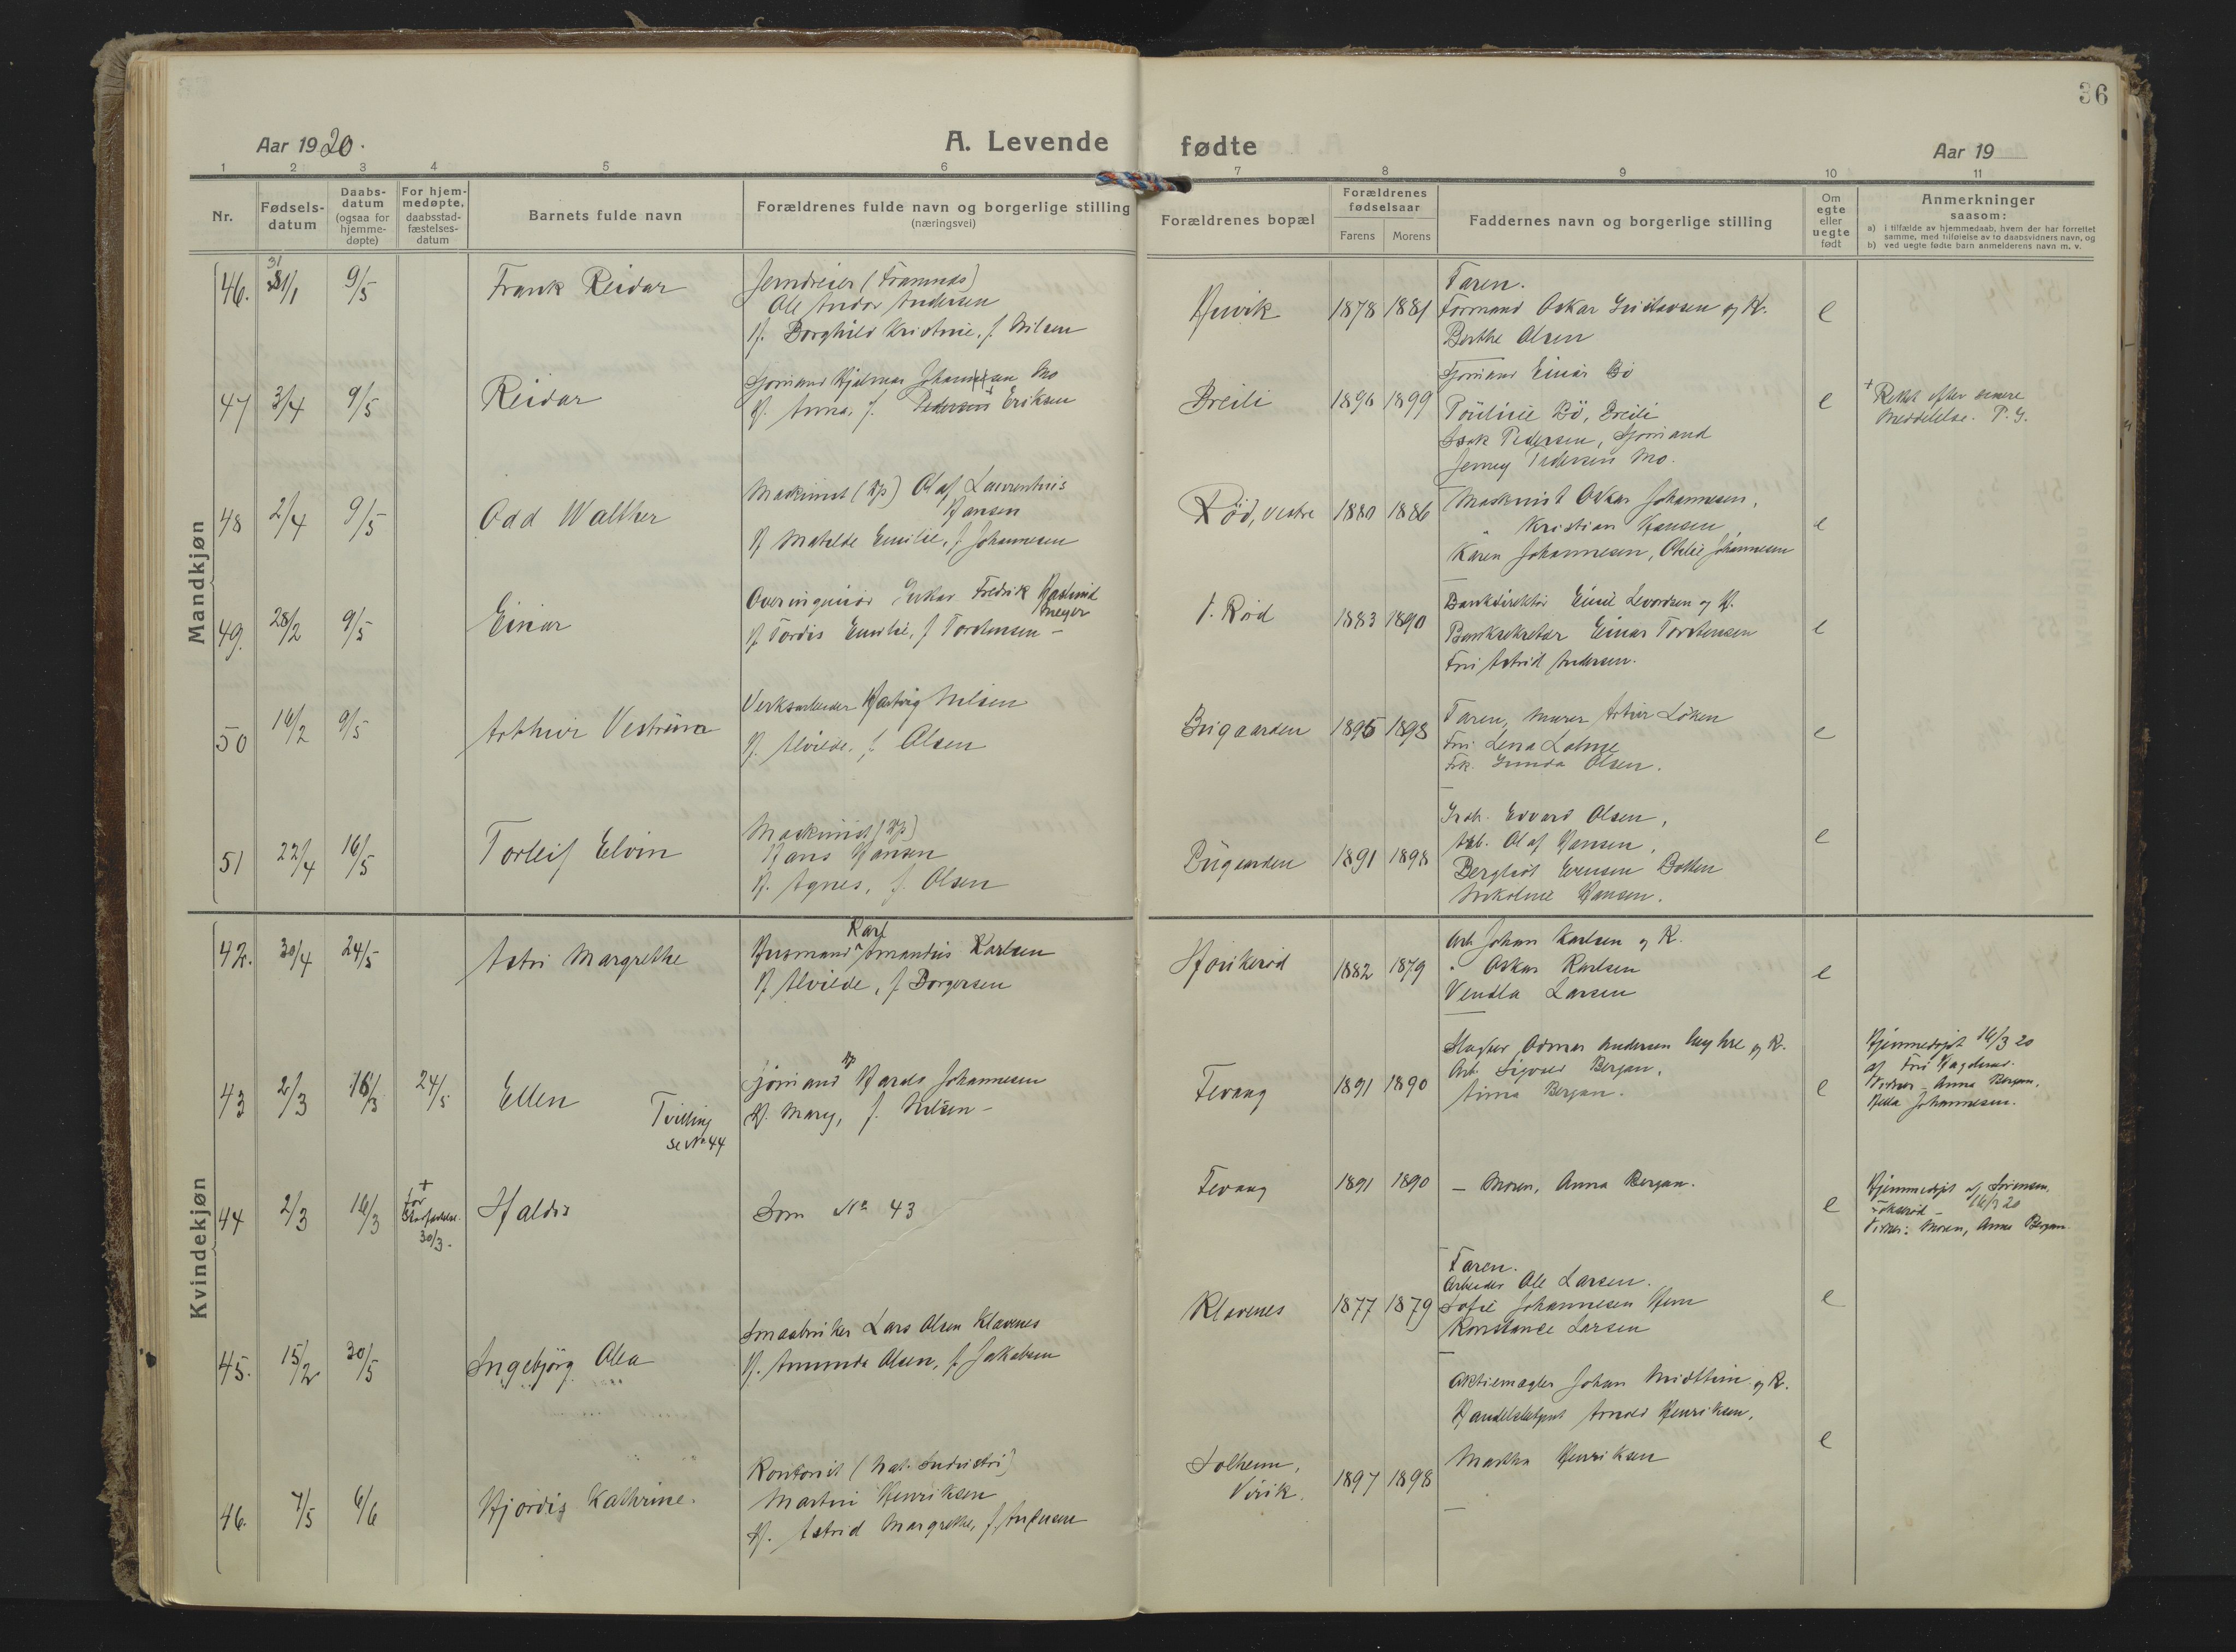 36
Aar 1920.
A. Levende fødte
Aar 19
1 2 3 4 5 6 7 8 9 10 11
Nr.
Fødsels-
datum
Daabs-
datum
(ogsaa for
hjemme-
døpte)
For hjem-
medøpte,
daabsstad-
fæstelses-
datum
Barnets fulde navn
Forældrenes fulde navn og borgerlige stilling
(næringsvei)
Forældrenes bopæl
Forældrenes
fødselsaar
Farens Morens
Faddernes navn og borgerlige stilling
Om
egte
eller
uegte
født
Anmerkninger
saasom:
a) i tilfælde av hjemmedaab, hvem der har forrettet
samme, med tilføielse av to daabsvidners navn, og
b) ved uegte fødte barn anmelderens navn m. v.
Mandkjøn
46. 31/1 9/5 Frank Reidar
Jerndreier (Framnæs)
Ole Andor Andersen
H. Borghild Kristine, f. Nilsen
1878 1881
Faren.
Formand Oskar Gustavsen og K.
Berthe Olsen
e
47 3/4 9/5 Reidar
Sjømand Hjalmar Johannsen Mo
H. Anna, f. Pedersen Eriksen
Breili 1896 1899
Sjømand Einar Bö
Pauline Bö, Breili
Isak Pedersen, Sjømand
Jenny Pedersen Mo.
e
+ Rettet efter senere
Meddelelse. P. G.
48 2/4 9/5 Odd Walther
Maskinist (Hp) Olaf Laurentius
Hansen
H Matilde Emilie, f. Johannesen
Rød, vestre 1880 1886
Maskinist Oskar Johannesen,
" Kristian Hansen,
Karen Johannesen, Othilie Johannesen
e
49. 28/2 9/5 Einar
Overingeniør Fredrik
Meyer
H Tordis Emilie, f. Torstensen –
V. Rød 1883 1890
Bankdirektør Emil Levordsen og H.
Banksekretær Einar Torstensen
Fru Astrid Andersen.
e
50 14/2 9/5 Arthur
Verksarbeider Hartvig Nilsen
H. Alvilde, f. Olsen
1895 1898
Faren, Murer Artur Löken
Fru Lena
Frk. Gunda Olsen.
e
51 22/4 16/5 Torleif Elvin
Maskinist (Hp)
Hans Hansen
H. Agnes, f. Olsen
1891 1898
Edvard Olsen,
Arb. Olaf Hansen,
Bergliot Evensen
Nikoline Hansen.
e
Kvindekjøn
42. 30/4 24/5 Astri Margrethe
Karl
Husmand ^ Amandus Karlsen
H Alvilde, f. Borgersen
1882 1879
Arb. Johan Karlsen og K.
" Oskar Karlsen
Vendla Larsen
e
43 2/3 16/3 24/5 Ellen
Tvilling
se No 44
Hp
Sjømand Harald Johannesen
H. Mary, f. Nilsen –
Fevang 1891 1890
Slagter Odmar Andersen og K.
Arb. Sigvald Bergan,
Anna Bergan.
e
Hjemmedøpt 16/3 20
af Fru
Vidner – Anna Bergan,
Hella Johannesen.
44 2/3 16/3
+
før
30/3.
Haldis
Som No 43
Fevang 1891 1890
– Moren, Anna Bergan.
e
Hjemmedøpt af Sörensen,
16/3 20
Vidner: Moren, Anna Bergan
45. 15/2 30/5 Ingebjörg Olea
Smaabruker Lars Olsen Klavenes
H. Amunda Olsen, f. Jakobsen
Klavenes 1877 1879
Faren.
Arbeider Ole Larsen.
Sofie Johannesen Hem
Konstance Larsen
e
46. 7/5 6/6 Hjördis Kathrine.
Kontorist (Nat. Industri)
Martin Henriksen
H. Astrid Margrethe, f.
Solheim,
Virik. 1897 1898
Aktiemægler Johan Midttun og K.
Arnold Henriksen,
Martha Henriksen
e